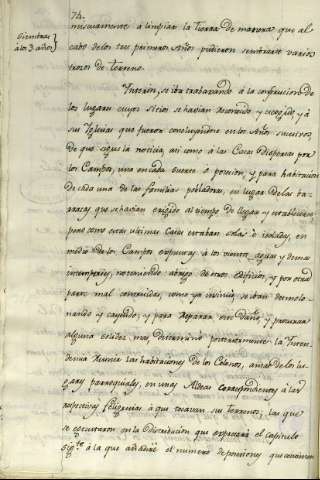 74.
Siembras
á los 3 años
nuevamente á limpiar la Tierra de manera que al
cabo de los tres primeros Años pudieron sembrarse varios
trozos de terreno.
Interin, se iba trabajando á la construcion de
los lugares cuyos sitios se havian reconocido y escogido, y á
sus Iglesias que fueron concluyendose en los Años sucesivos
de que sigue la noticia, asi como á las Casas dispersas por
los Campos, una en cada suerte ó posesion, y para habitacion
de cada una de las familias pobladoras, en lugar de las ba-
rracas que se havian erigido al tiempo de llegar y establecerse,
pero como estas ultimas Casas estaban solas ó isoladas, en
medio de los Campos expuestas á los vientos, aguas y demas
intemperies, no teniendo abrigo de otros edificios, y por otra
parte mal construidas, como ya insinué, se iban desmoro-
nando y cayendo; y para reparar este daño, y procurar
alguna solidez mas, determinó posteriormente la Inten-
dencia reunir las habitaciones de los Colonos, amas de los lu-
gares parroquiales, en unas Aldeas correspondientes á las
respectivas feligresias á que tocavan sus terrenos, las que
se executaron en la Distribucion que expresará el capitulo
sigte. á la que añadiré el numero de posesiones que